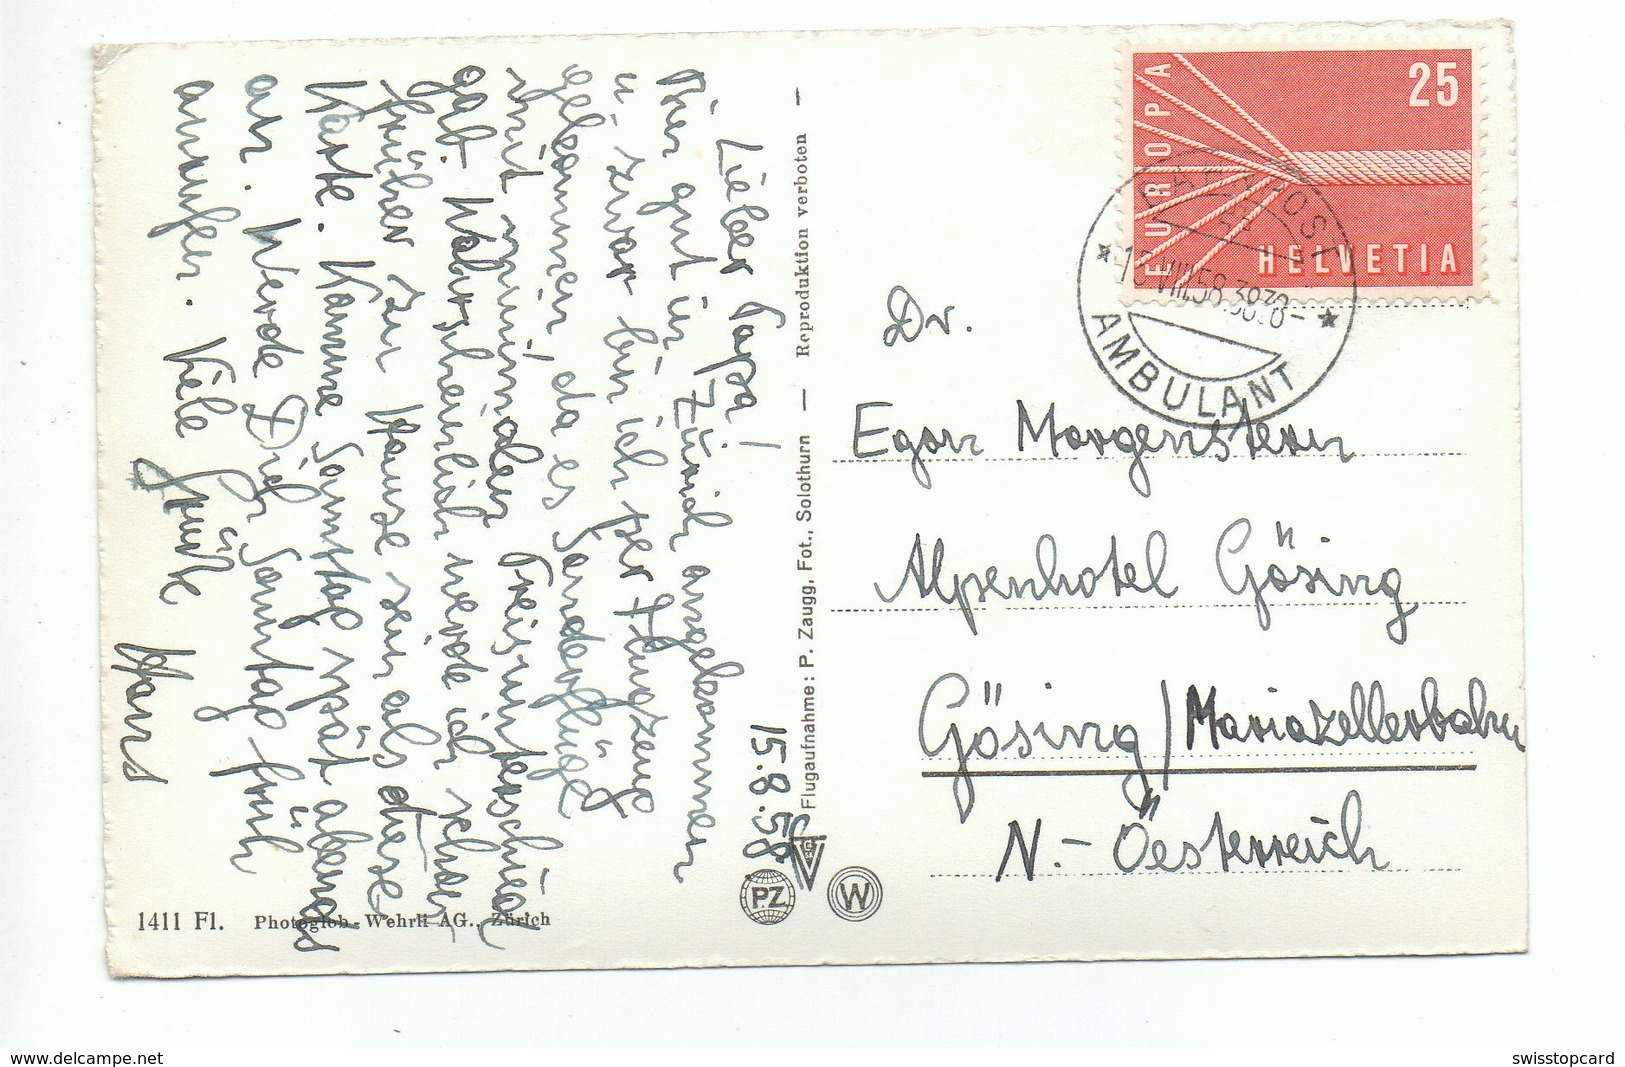 15.8.58.
Lieber Papa!
Bin gut in Zürich angekommen
u. zwar bin ich per Flugzeug
gekommen, da es Sonderflüge
mit minimalen Preisunterschied
gab. Wahrscheinlich werde ich schon
früher zu Hause sein als diese
Karte. Komme Samstag spät abends
an. Werde Dich Sonntag früh
anrufen. Viele Grüße
Hans
1411 Fl. Photoglob-Wehrli AG., Zürich
Flugaufnahme: P. Zaugg, Fot., Solothurn — Reproduktion verboten —
P.Z
W
EUROPA
25
HELVETIA
VIII.58
AMBULANT
Dr.
Egon Morgenstern
Alpenhotel Gösing
Gösing/Mariazellerbahn
N.-Österreich
www.delcampe.net
swisstopcard